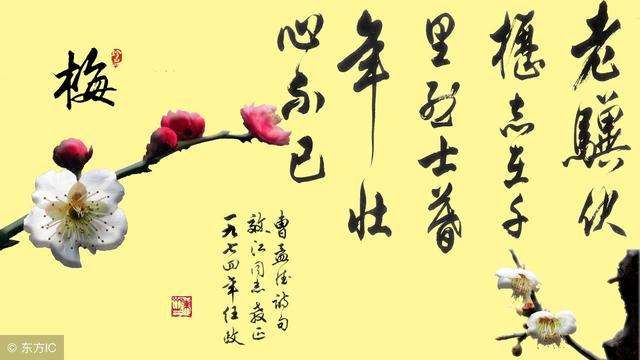 老驥伏
櫪志在千
里烈士暮
年壮
心不已
曹孟德诗句
江同志教正
一九七四年任政
梅
© 东方IC